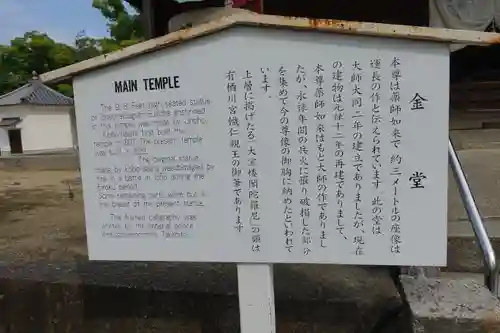 MAIN TEMPLE
high, seated statue
of Buddha enshrined
in the temple was made by
Kobo-daishi first built the
temple in 807. The present temple
was built in
The original statue
made by Kobo-daishi was damaged by
fire in a battle in the
Eiroku period.
Some remaining parts were put in
the breast of the present statue.
The framed calligraphy was
written by the imperial prince
金堂
本尊は薬師如来で 約三メートルの座像は
運長の作と伝えられています 此の堂は
大師大同二年の建立でありましたが、現在
の建物は元禄十二年の再建でありまして、
本尊薬師如来はもと大師の作でありまし
たが、永禄年間の兵火に罹り破損した部分
を集めて今の尊像の御胸に納めたといわれて
います。
上層に掲げたる「大宝楼閣陀羅尼」の額は
有栖川宮幟仁親王の御筆であります